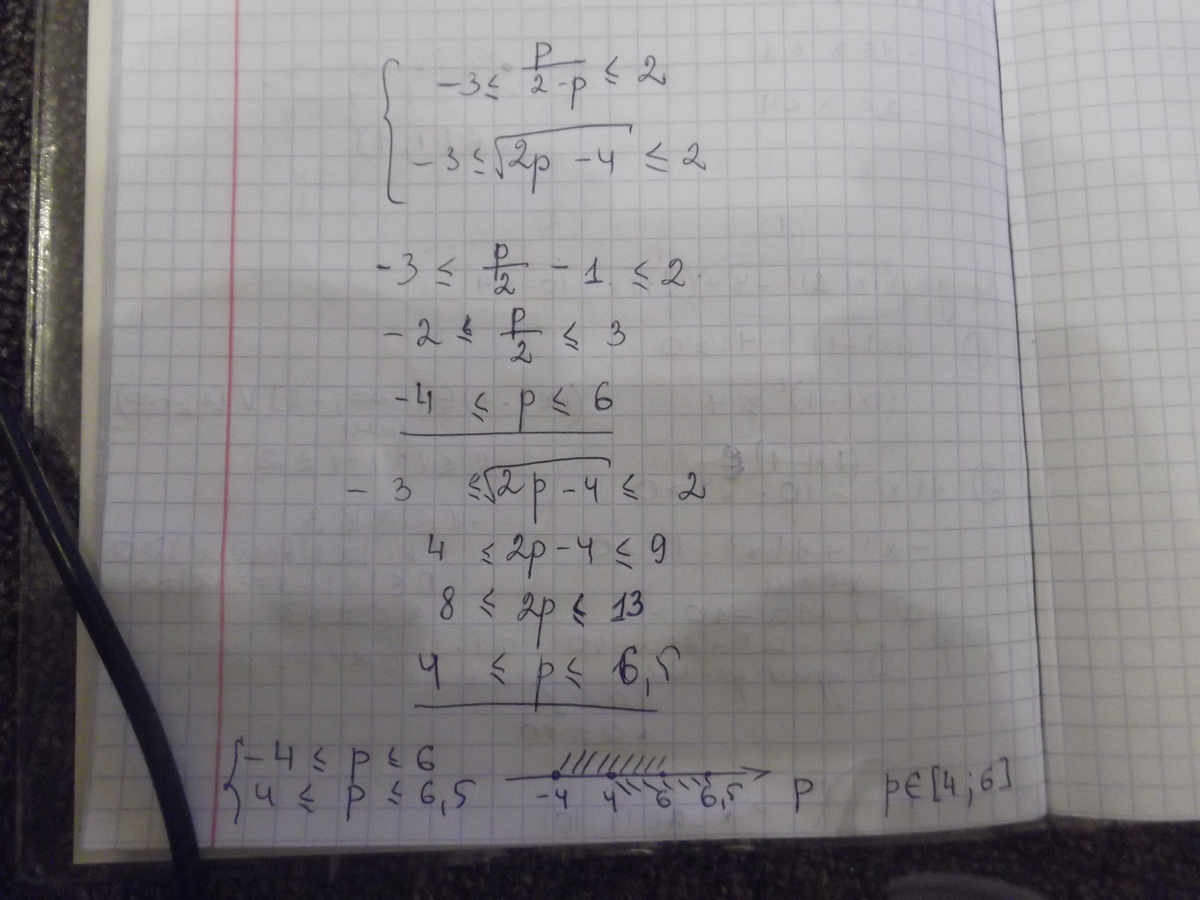 { -3 ≤ p/(2-p) ≤ 2
-3 ≤ √(2p - 4) ≤ 2
-3 ≤ p/2 - 1 ≤ 2
-2 ≤ p/2 ≤ 3
-4 ≤ p ≤ 6
-3 ≤ √(2p - 4) ≤ 2
4 ≤ 2p - 4 ≤ 9
8 ≤ 2p ≤ 13
4 ≤ p ≤ 6,5
{ -4 ≤ p ≤ 6
4 ≤ p ≤ 6,5 -4 4 6 6,5 p p∈[4;6]